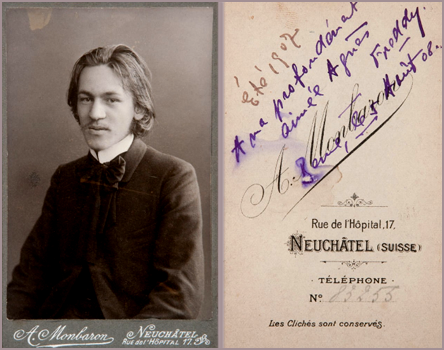 A. Monbaron
NEUCHÂTEL
RUE DE L'HÔPITAL 17.
Été 1907
A ma profondénat
aimée Agnès
Freddy.
Août 08.
A. Monbaron
Rue de l'Hôpital, 17.
NEUCHÂTEL (SUISSE)
TÉLÉPHONE
No
Les Clichés sont conservés.